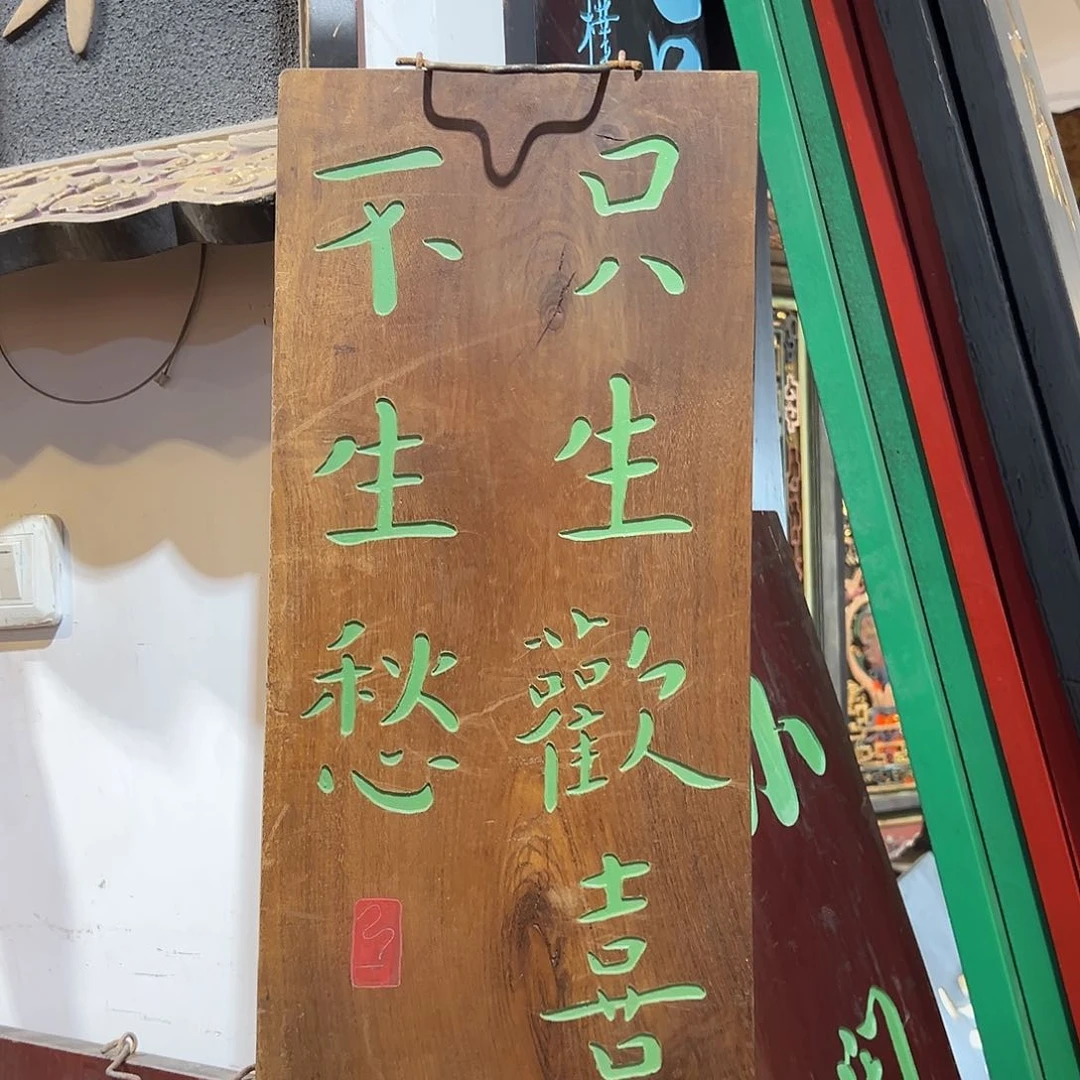 只生歡喜
不生愁
樸
小